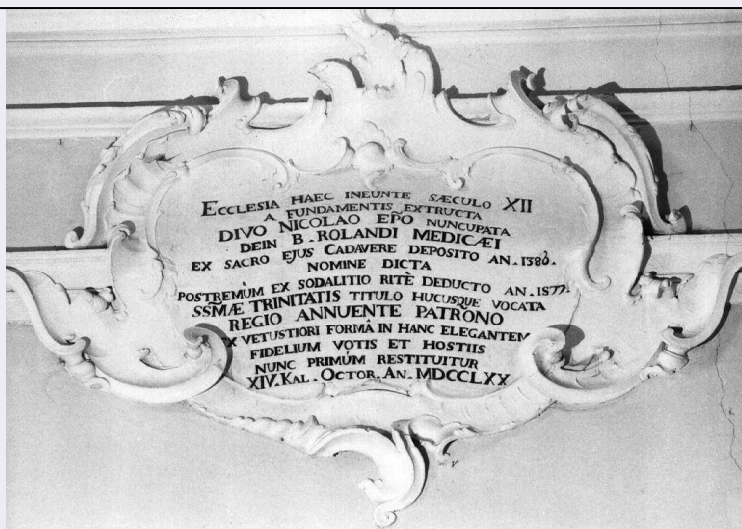 ECCLESIA HAEC INEUNTE SÆCULO XII
A FUNDAMENTIS EXTRUCTA
DIVO NICOLAO EPO NUNCUPATA
DEIN B. ROLANDI MEDICÆI
EX SACRO EJUS CADAVERE DEPOSITO AN. 1386.
NOMINE DICTA
POSTREMÙM EX SODALITIO RITÈ DEDUCTO AN. 1577.
SSMÆ TRINITATIS TITULO HUCUSQUE VOCATA
REGIO ANNUENTE PATRONO
EX VETUSTIORI FORMÂ IN HANC ELEGANTEM
FIDELIUM VOTIS ET HOSTIIS
NUNC PRIMÙM RESTITUITUR
XIV. KAL. OCTOR. AN. MDCCLXX